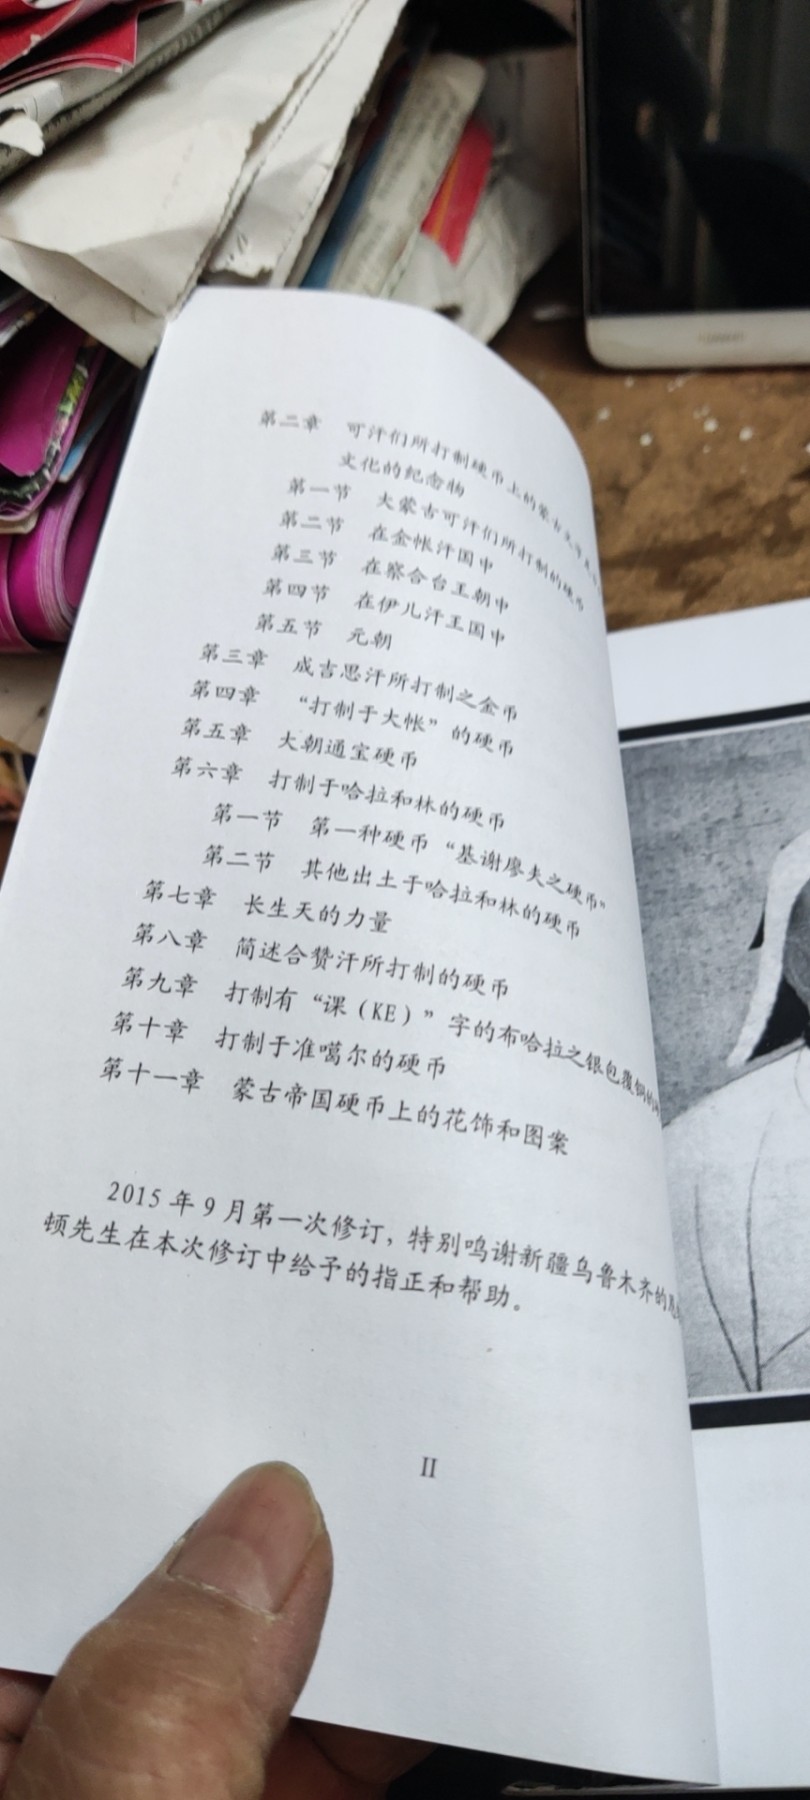 第二章 可汗们所打制硬币上的蒙古文字
文化的纪念物
第一节 大蒙古可汗们所打制的硬币
第二节 在金帐汗国中
第三节 在察合台王朝中
第四节 在伊儿汗王国中
第五节 元朝
第三章 成吉思汗所打制之金币
第四章 “打制于大帐”的硬币
第五章 大朝通宝硬币
第六章 打制于哈拉和林的硬币
第一节 第一种硬币“基谢廖夫之硬币”
第二节 其他出土于哈拉和林的硬币
第七章 长生天的力量
第八章 简述合赞汗所打制的硬币
第九章 打制有“课(KE)”字的布哈拉之银包覆铜的
第十章 打制于准噶尔的硬币
第十一章 蒙古帝国硬币上的花饰和图案
2015年9月第一次修订，特别鸣谢新疆乌鲁木齐的
顿先生在本次修订中给予的指正和帮助。
II